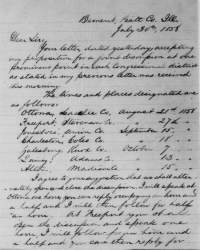 Bement, Piatt Co. Ill.
July 30th, 1858
Dear Sir,
Your letter dated yesterday, accepting
my proposition for a joint discussion at one
prominent point in each Congressional district
as stated in my previous letter was received
this morning.
The times and places designated are
as follows:
Ottawa, LaSalle Co. August 21st 1858
Freeport, Stevenson Co. " 27th "
Jonesboro, Union Co. September 15, "
Charleston, Coles Co. " 18 "
Galesburg, Knox Co. October 7 "
Quincy, Adams Co. " 13 "
Alton, Madison Co. " 15 "
I agree to your suggestion that we shall alter-
nately open and close the discussion. I will speak at
Ottawa one hour, you can reply occupying an hour and
a half and I will then follow for half
an hour. At Freeport you shall
open the discussion and speak one
hour, I will follow for an hour and
a half and you can then reply for